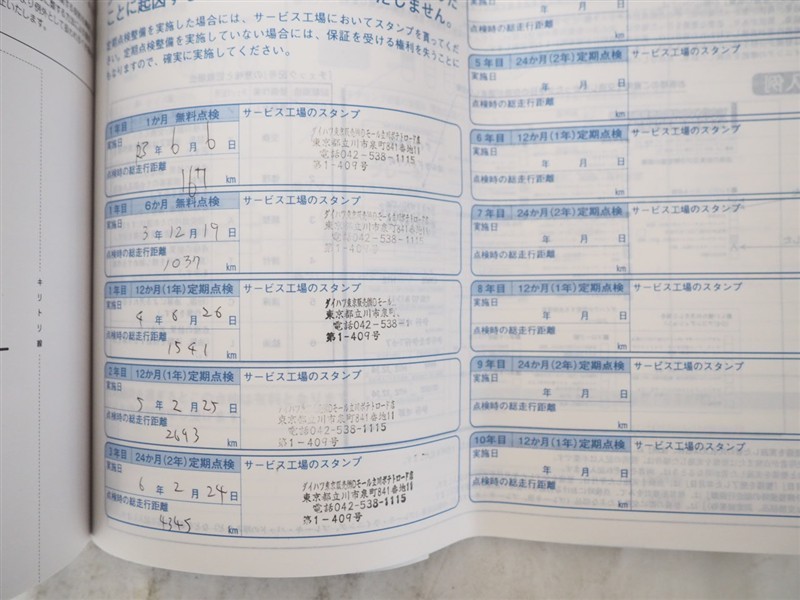 ことに起因す
定期点検整備を実施した場合には、サービス工場においてスタンプを貰ってくだ
さい。定期点検整備を実施していない場合には、保証を受ける権利を失うことに
もなりますので、確実に実施してください。
1年目 1か月 無料点検 サービス工場のスタンプ
実施日
年 6 月 6 日
点検時の総走行距離
167 km
東京都立川市泉町841番地11
電話042-538-1115
第1-409号
1年目 6か月 無料点検 サービス工場のスタンプ
実施日
3 年 12 月 19 日
点検時の総走行距離
1037 km
1年目 12か月(1年)定期点検 サービス工場のスタンプ
実施日
4 年 6 月 26 日
点検時の総走行距離
1541 km
東京都立川市泉町
電話042-538-1
第1-409号
2年目 12か月(1年)定期点検 サービス工場のスタンプ
実施日
5 年 2 月 25 日
点検時の総走行距離
2693 km
東京都立川市泉町841番地11
電話042-538-1115
第1-409号
3年目 24か月(2年)定期点検 サービス工場のスタンプ
実施日
6 年 2 月 24 日
点検時の総走行距離
4345 km
東京都立川市泉町841番地11
電話042-538-1115
第1-409号
点検時の総走行距離
km
5年目 24か月(2年)定期点検 サービス工場のスタンプ
実施日
年 月 日
点検時の総走行距離
km
6年目 12か月(1年)定期点検 サービス工場のスタンプ
実施日
年 月 日
点検時の総走行距離
km
7年目 24か月(2年)定期点検 サービス工場のスタンプ
実施日
年 月 日
点検時の総走行距離
km
8年目 12か月(1年)定期点検 サービス工場のスタンプ
実施日
年 月 日
点検時の総走行距離
km
9年目 24か月(2年)定期点検 サービス工場のスタンプ
実施日
年 月 日
点検時の総走行距離
km
10年目 12か月(1年)定期点検 サービス工場のスタンプ
実施日
年 月 日
点検時の総走行距離
km
キリトリ線